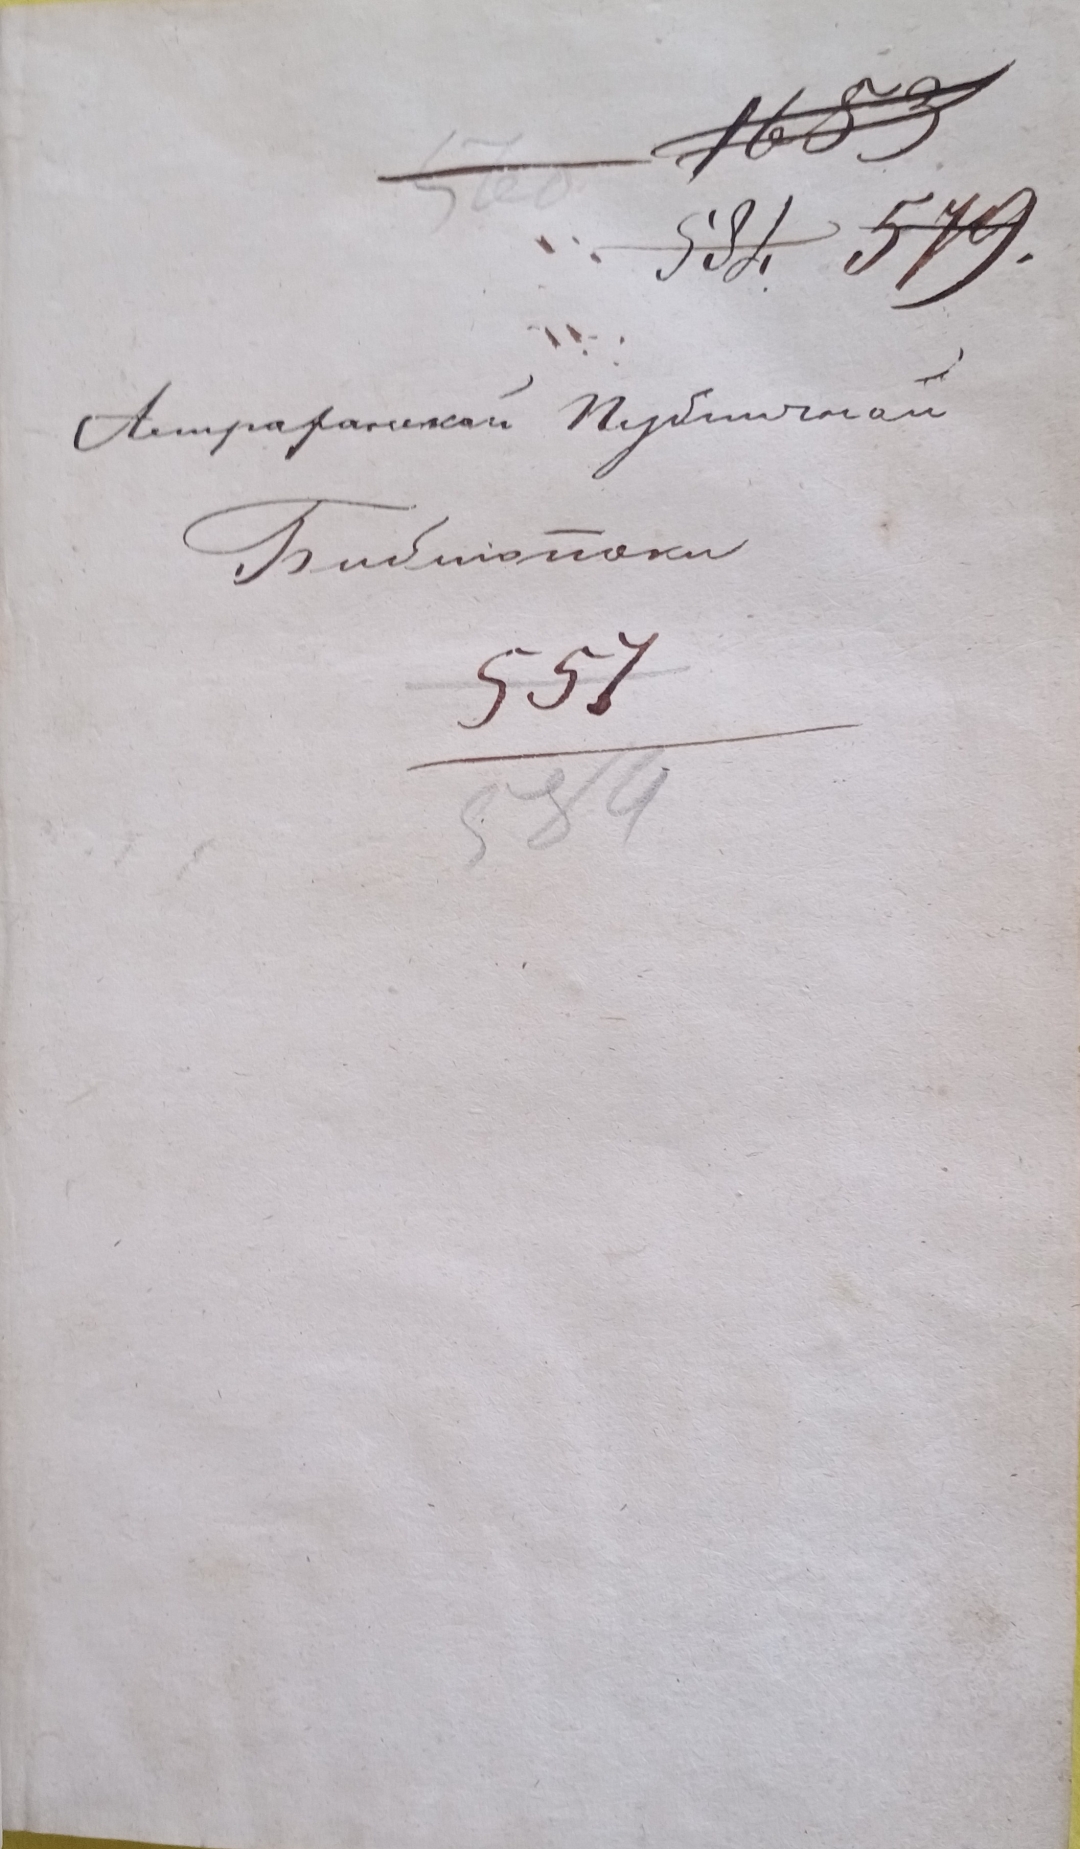 1683
581. 579.
Астраханской Публичной
Библіотеки
557
584